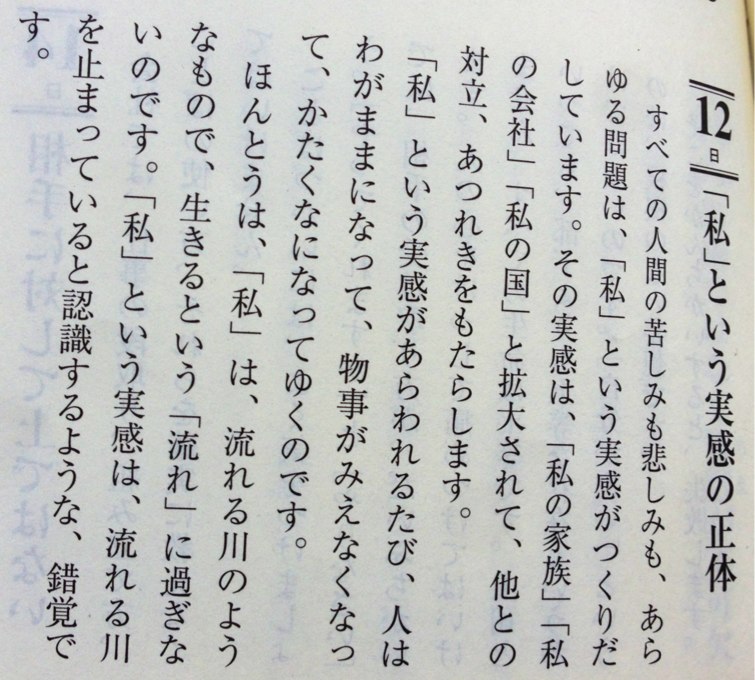 12日 「私」という実感の正体
すべての人間の苦しみも悲しみも、あら
ゆる問題は、「私」という実感がつくりだ
しています。その実感は、「私の家族」「私
の会社」「私の国」と拡大されて、他との
対立、あつれきをもたらします。
「私」という実感があらわれるたび、人は
わがままになって、物事がみえなくなっ
て、かたくなになってゆくのです。
ほんとうは、「私」は、流れる川のよう
なもので、生きるという「流れ」に過ぎな
いのです。「私」という実感は、流れる川
を止まっていると認識するような、錯覚で
す。
14日 相手に対して上ではない